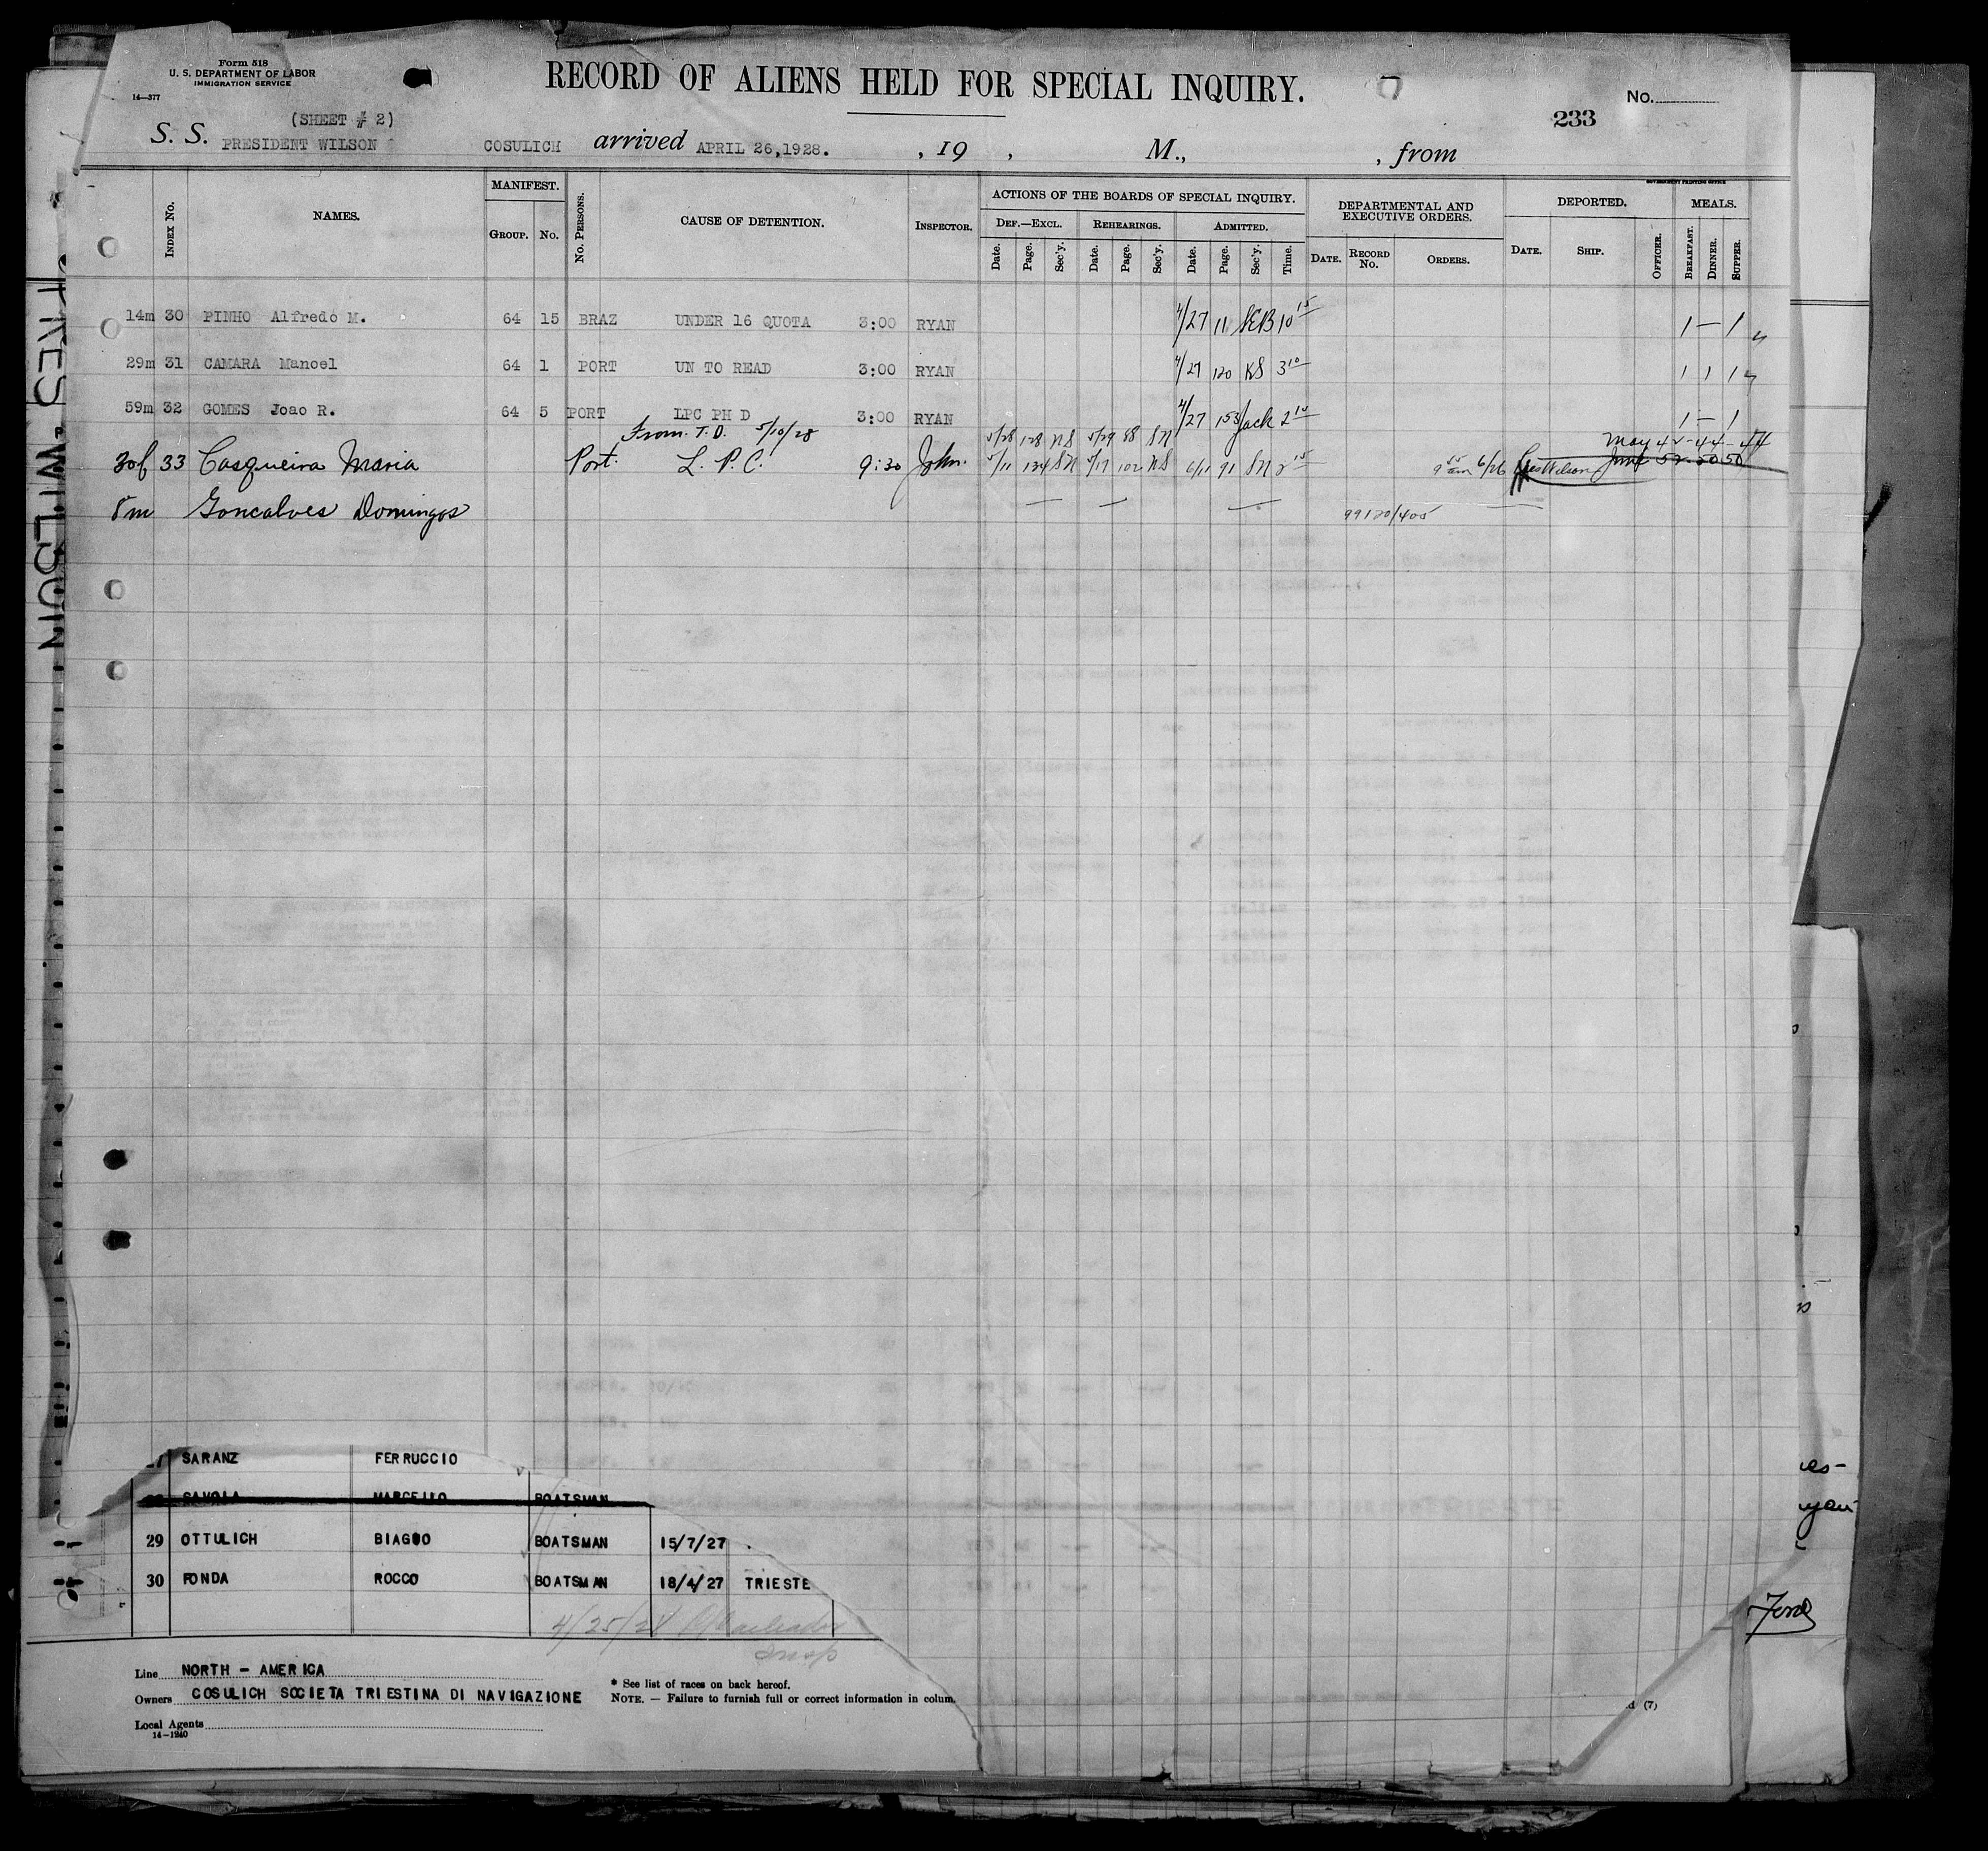 Form 518
U. S. DEPARTMENT OF LABOR
IMMIGRATION SERVICE
14—377
RECORD OF ALIENS HELD FOR SPECIAL INQUIRY.
No.
233
(SHEET # 2)
S. S. PRESIDENT WILSON COSULICH arrived APRIL 26,1928. , 19 , M., , from
GOVERNMENT PRINTING OFFICE
INDEX No. NAMES. MANIFEST. GROUP. No. No. PERSONS. CAUSE OF DETENTION. INSPECTOR.
ACTIONS OF THE BOARDS OF SPECIAL INQUIRY. DEPARTMENTAL AND EXECUTIVE ORDERS. DEPORTED. MEALS.
DEF.—EXCL. REHEARINGS. ADMITTED.
Date. Page. Sec'y. Date. Page. Sec'y. Date. Page. Sec'y. Time. DATE. RECORD No. ORDERS. DATE. SHIP. OFFICER. BREAKFAST. DINNER. SUPPER.
14m 30 PINHO Alfredo M. 64 15 BRAZ UNDER 16 QUOTA 3:00 RYAN 4/27 11 SEB 10 15 1 — 1
29m 31 CAMARA Manoel 64 1 PORT UN TO READ 3:00 RYAN 4/27 120 KS 3 10 1 1 1
59m 32 GOMES Joao R. 64 5 PORT LPC PH D 3:00 RYAN 4/27 153 Jack 2 10 1 — 1
From T.D. 5/10/28 5/28 128 NS 5/29 88 SN May 42-44-44
30f 33 Casqueira Maria Port. L. P. C. 9:30 John. 5/11 134 SN 5/17 102 NS 6/11 91 SN 2 15 9 15 am 6/26 Pres Wilson June 52-50 50
8m Goncalves Domingos — — — 99120/405 —
PRES. WILSON
SARANZ FERRUCCIO
SAVOLA MARCELLO BOATSMAN
29 OTTULICH BIAGIO BOATSMAN 15/7/27
30 FONDA ROCCO BOATSMAN 18/4/27 TRIESTE
4/25/28
Insp
Ford
Line NORTH - AMERICA
Owners COSULICH SOCIETA TRIESTINA DI NAVIGAZIONE
Local Agents
14-1240
* See list of races on back hereof.
NOTE. — Failure to furnish full or correct information in colum
d (7)